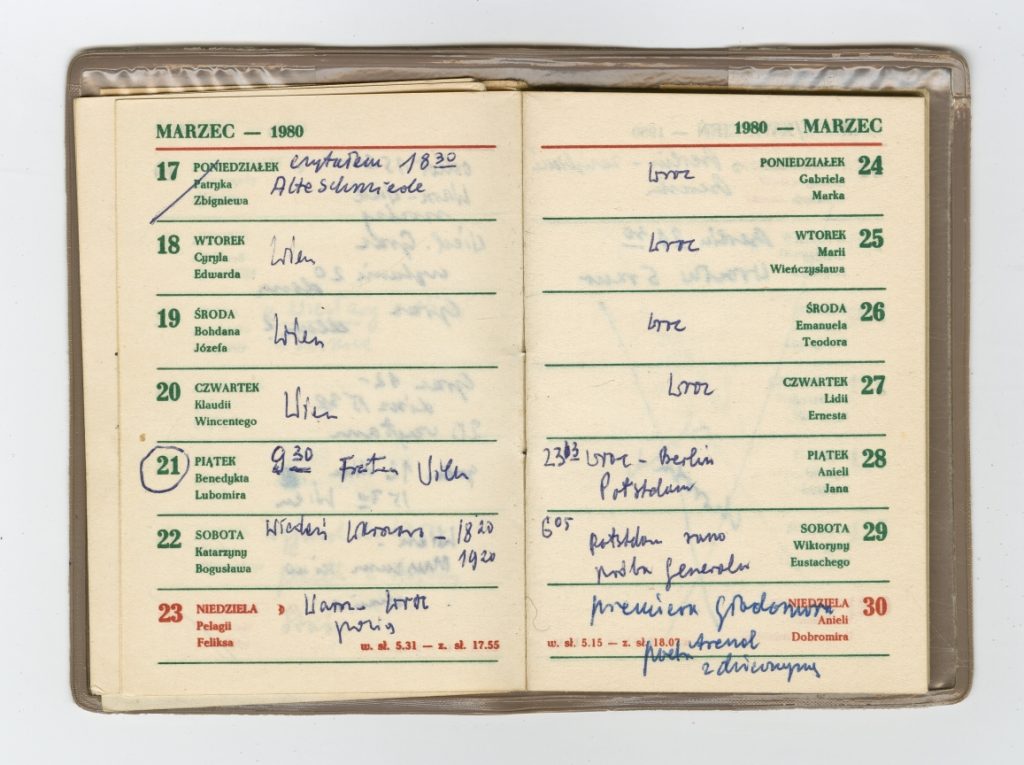 MARZEC — 1980
17 PONIEDZIAŁEK czytałem 18 30
Patryka Alte Schmiede
Zbigniewa
18 WTOREK
Cyryla Wien
Edwarda
19 ŚRODA
Bohdana Wien
Józefa
20 CZWARTEK
Klaudii Wien
Wincentego
21 PIĄTEK 9 30
Benedykta Wien
Lubomira
22 SOBOTA Wiedeń Warszawa – 18 20
Katarzyny 19 20
Bogusława
23 NIEDZIELA Warsz – Wroc
Pelagii
Feliksa w. sł. 5.31 — z. sł. 17.55
1980 — MARZEC
PONIEDZIAŁEK 24
Wroc Gabriela
Marka
WTOREK 25
Wroc Marii
Wieńczysława
ŚRODA 26
Wroc Emanuela
Teodora
Wroc CZWARTEK 27
Lidii
Ernesta
23 03 Wroc – Berlin PIĄTEK 28
Potsdam Anieli
Jana
6 05 SOBOTA 29
Potsdam rano Wiktoryny
próba generalna Eustachego
premiera NIEDZIELA 30
Anieli
Dobromira
w. sł. 5.15 — z. sł. 18.07